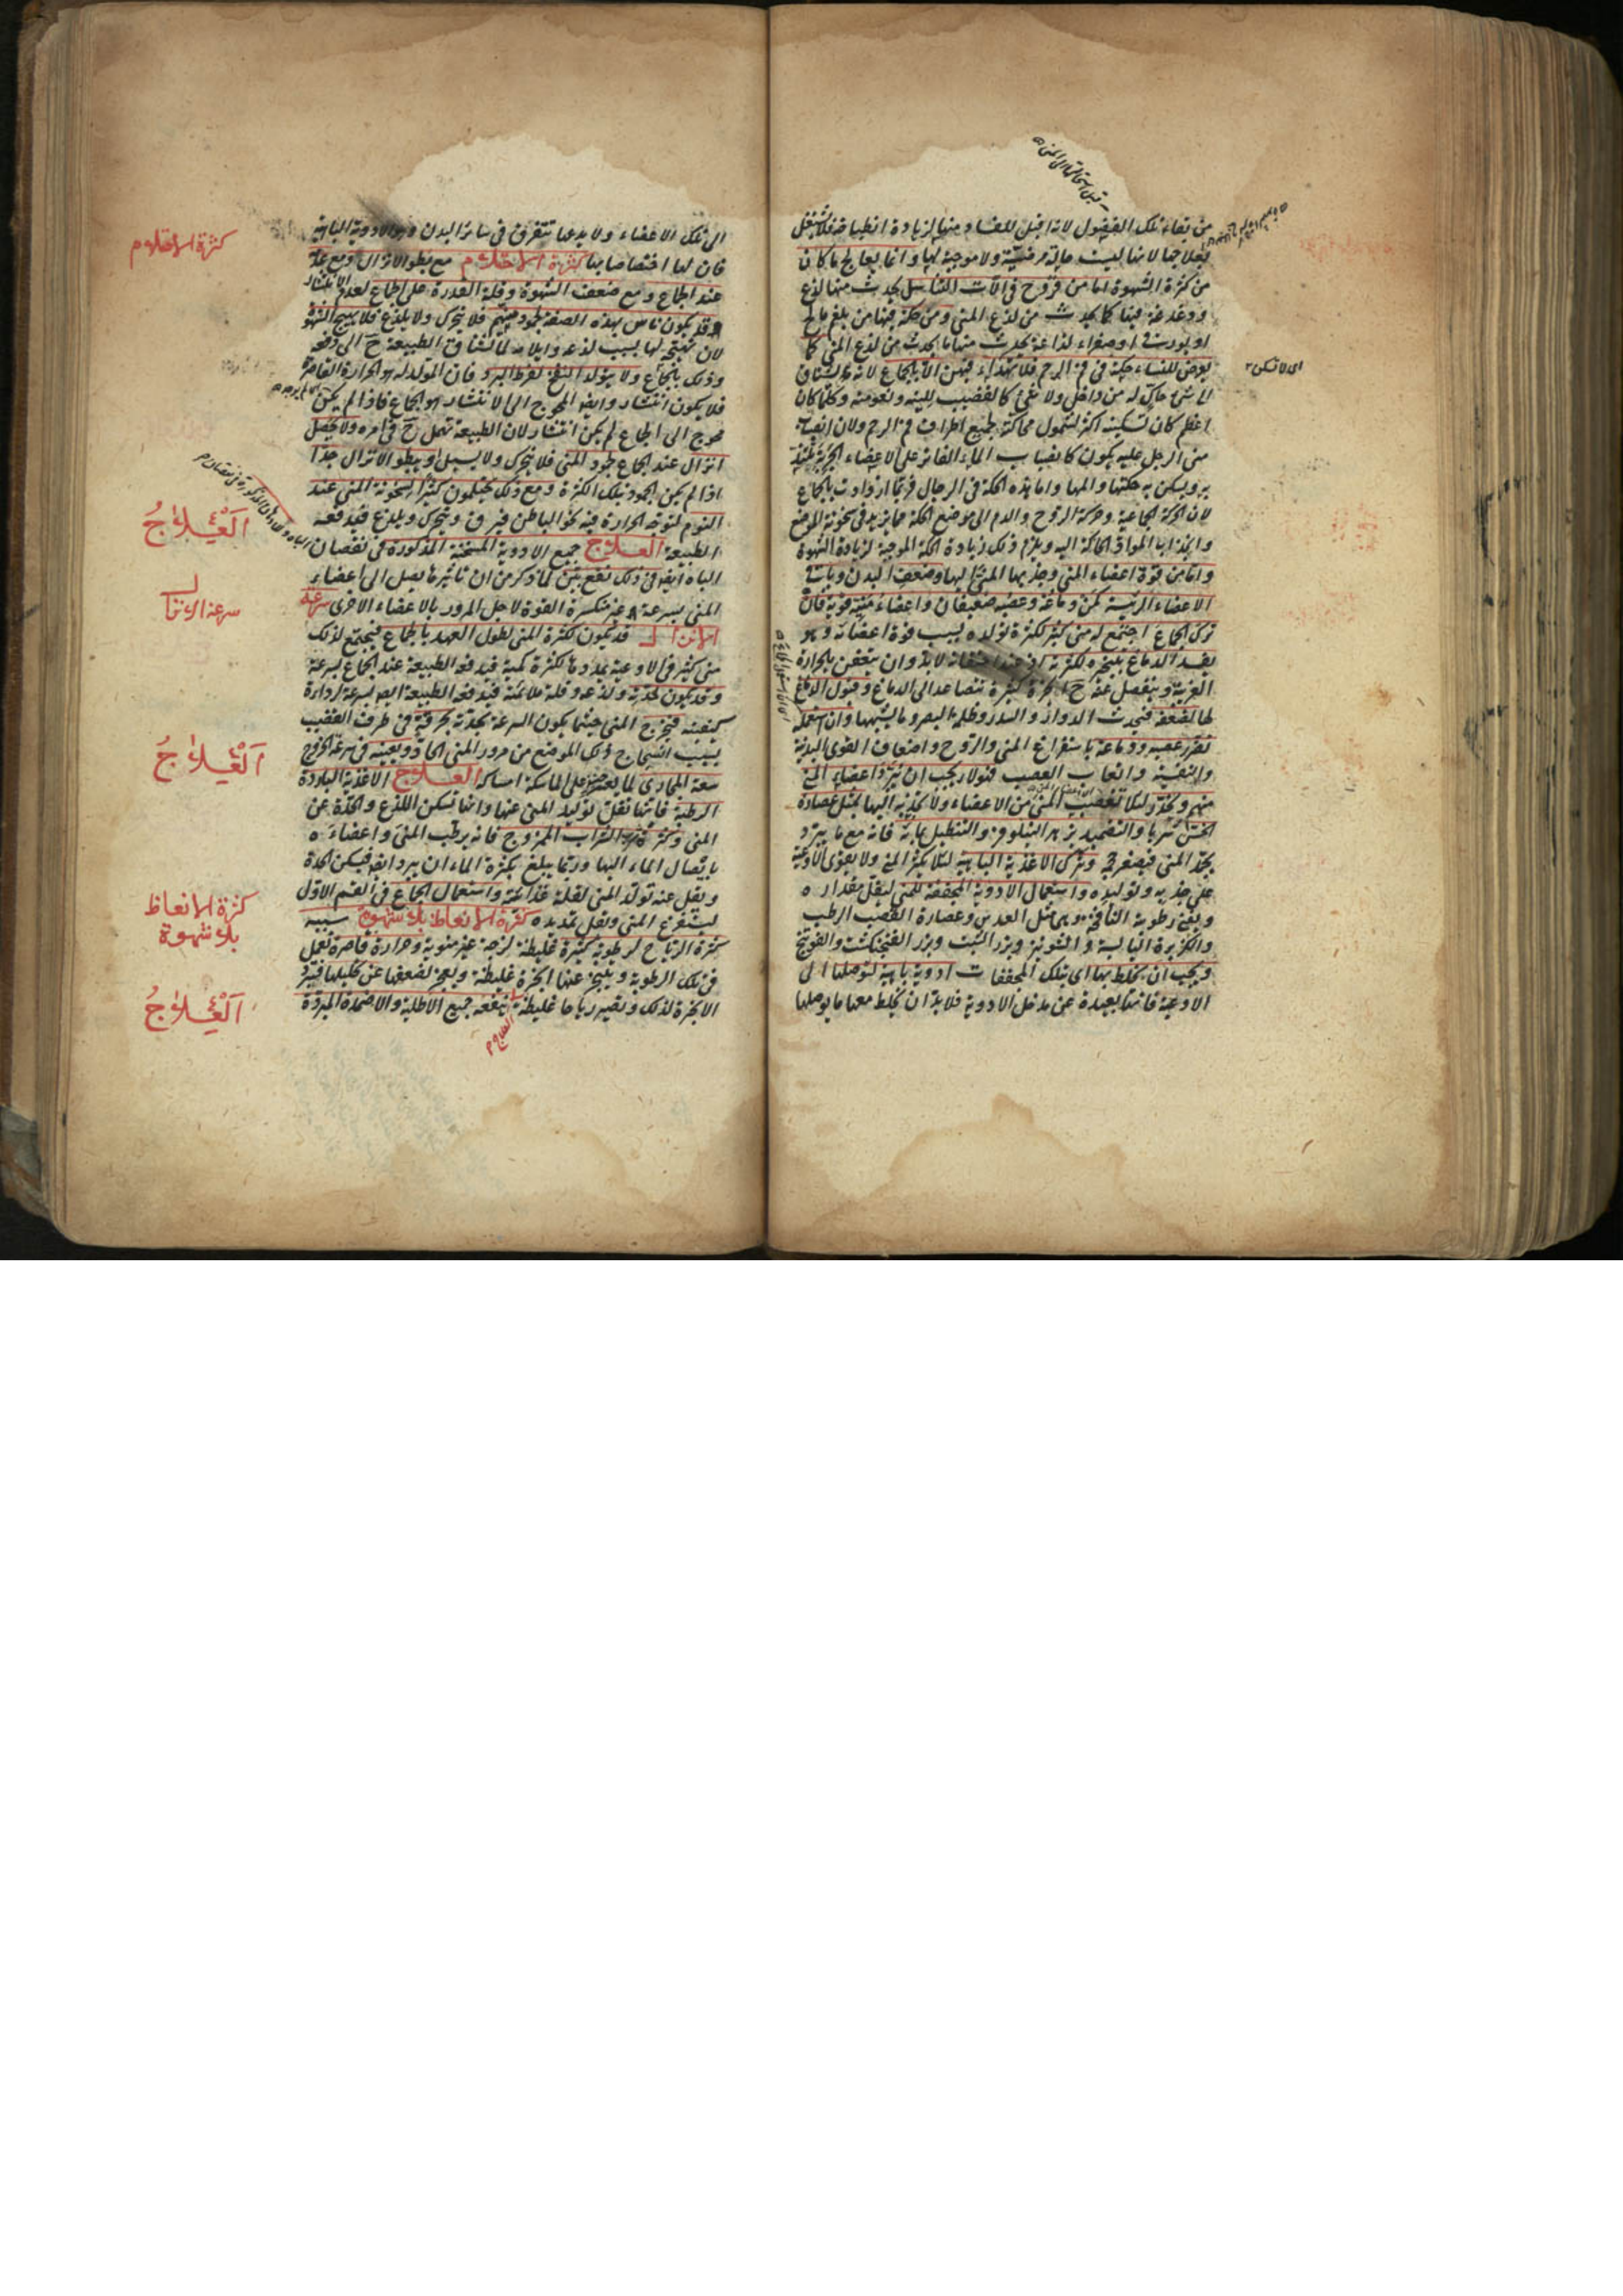 من بقاء تلك الفضول لانه اقبل للفساد منها لزيادة انطباخه فلا يشتغل
بعلاجها لانها ليست حالة مرضية ولا موجبة لها وانما يعالج ما كان
من كثرة الشهوة اما من قروح في آلات التناسل يحدث منها لذع
ودغدغة فيها كما يحدث من لذع المني ومن حكة فيها من بلغم مالح
او بورقي او صفراء لذاعة يحدث منها ما يحدث من لذع المني كما
يعرض للنساء حكة في فم الرحم فلا يهدأ فيهن الا بالجماع لانه يشتاق
الى شئ حاك له من داخل ولا شئ كالقضيب للينه ونعومته وكلما كان
اعظم كان تسكينه اكثر لشمول محاكته جميع اطراف فم الرحم ولان انصباب
مني الرجل عليه يكون كانصباب الماء الفاتر على الاعضاء
به ويسكن به حكتها والمها واما هذه الحكة في الرجال فربما ازدادت بالجماع
لان الحركة الجماعية وحركة الروح والدم الى موضع الحكة مما يزيد في سخونة الموضع
وانجذاب المواد الحاكة اليه ويلزم ذلك زيادة الحكة الموجبة لزيادة الشهوة
واما من قوة اعضاء المني وجذبها المني اليها وضعف البدن وباقي
الاعضاء الرئيسة كمن دماغه وعصبه ضعيفان واعضاء منيته قوية فان
ترك الجماع اجتمع له مني كثير لكثرة تولده بسبب قوة اعضائه وهو
يفسد الدماغ بتبخره لكثرته اذ عند احتقانه لابد وان يتعفن بالحرارة
الغريبة وينفصل عنه ح ابخرة كثيرة تتصاعد الى الدماغ وقبول الدماغ
لها لضعفه فيحدث الدوار والسدر وظلمة البصر وما يشبهها وان استعمله
تضرر عصبه ودماغه باستفراغ المني والروح واضعاف القوى البدنية
والنفسية واتعاب العصب فهؤلاء يجب ان تبرد اعضاء المني
منهم وتخدر لئلا تغصب المني من الاعضاء ولا تجذبه اليها بمثل عصارة
الخس شربا والتضميد بزهر النيلوفر والتنطيل بمائه فانه مع ما يبرد
يجمد المني فيصغر حجمه وترك الاغذية الباهية لئلا يكثر المني ولا يقوى الاوعية
على جذبه وتوليده واستعمال الادوية المجففة للمني ليقل مقداره
ويفني رطوبته النافخة وهي مثل العدس وعصارة القصب الرطب
والكزبرة اليابسة والشونيز وبزر الشبت وبزر الفنجنكشت والفوتنج
ويجب ان يخلط بها اي بتلك المجففات ادوية باهية لتوصلها الى
الاوعية فانها بعيدة عن مدخل الادوية فلا بد ان يخلط معها ما يوصلها
اي لا تسكن
الى تلك الاعضاء ولا يدعها تتفرق في سائر البدن وهو الادوية الباهية
فان لها اختصاصا بها كثرة الاحتلام مع بطو الانزال ومع عدمه
عند الجماع ومع ضعف الشهوة وقلة القدرة على الجماع لعدم الانتشار
وقد يكون ناس بهذه الصفة لجمود منيهم فلا يتحرك ولا يلذع فلا يهيج الشهوة
لان تهيجه لها بسبب لذعه وايلامه لما تشتاق الطبيعة ح الى دفعه
وذلك بالجماع ولا يتولد النفخ لفرط البرد فان المولد له هو الحرارة القاصرة
فلا يكون انتشار وايضا المحوج الى الانتشار هو الجماع فاذا لم يكن
محوج الى الجماع لم يكن انتشار لان الطبيعة تهمل ح في امره ولا يحصل
انزال عند الجماع لجمود المني فلا يتحرك ولا يسيل او يبطو الانزال جدا
اذا لم يكن الجمود بتلك الكثرة ومع ذلك يحتلمون كثيرا لسخونة المني عند
النوم لتوجه الحرارة فيه نحو الباطن فيرق ويتحرك ويلذع فتدفعه
الطبيعة العلاج جميع الادوية المسخنة المذكورة في نقصان
الباه ايضا في ذلك نفع بين لما ذكر من ان تأثيرها يصل الى اعضاء
المني بسرعة غير منكسرة القوة لاجل المرور بالاعضاء الاخرى سرعة
الانزال قد يكون لكثرة المني لطول العهد بالجماع فيجتمع لذلك
مني كثير في الاوعية يمددها لكثرة كمية فيدفعه الطبيعة عند الجماع بسرعة
وقد يكون لحدته ولذعه وقلة ملائمته فيدفعه الطبيعة ايضا بسرعة لرداءة
كيفيته فيخرج المني حيثما يكون السرعة لحدته بحرقة في طرف القضيب
بسبب انسحاج ذلك الموضع من مرور المني الحاد ويعينه في سرعة الخروج
سعة المجاري لما يعسر على الماسكة امساكه العلاج الاغذية الباردة
الرطبة فانها تقلل توليد المني عنها وانها تسكن اللذع والحدة عن
المني وكثرة شرب الشراب الممزوج فانه يرطب المني واعضاءه
بايصال الماء اليها وربما يبلغ بكثرة الماء ان يبرد ايضا فيسكن الحدة
ويقل عنه تولد المني لقلة غذائيته واستعمال الجماع في القسم الاول
ليستفرغ المني ويقل تمديده كثرة الانعاظ بلا شهوة سببه
كثرة الرياح لرطوبة كثيرة غليظة لزجة غير منوية وحرارة قاصرة تعمل
في تلك الرطوبة ويتبخر عنها ابخرة غليظة ويعجز لضعفها عن تحليلها فتبرد
الابخرة لذلك وتصير رياحا غليظة ينفعه جميع الاطلية والاضمدة المبردة
كثرة الاحتلام
العلاج
سرعة الانزال
العلاج
كثرة الانعاظ
بلا شهوة
العلاج